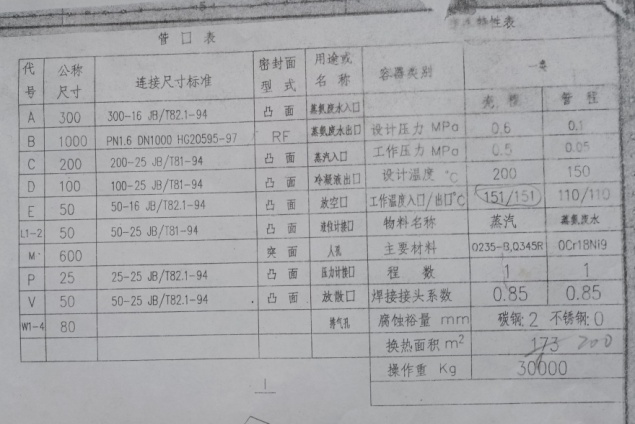 管口表
性表
代号 公称尺寸 连接尺寸标准 密封面型式 用途或名称 容器类别 一类
A 300 300-16 JB/T82.1-94 凸面 蒸氨废水入口 壳程 管程
B 1000 PN1.6 DN1000 HG20595-97 RF 蒸氨废水出口 设计压力 MPa 0.6 0.1
C 200 200-25 JB/T81-94 凸面 蒸汽入口 工作压力 MPa 0.5 0.05
D 100 100-25 JB/T81-94 凸面 冷凝液出口 设计温度 °C 200 150
E 50 50-16 JB/T82.1-94 凸面 放空口 工作温度入口/出口°C 151/151 110/110
L1-2 50 50-25 JB/T81-94 凸面 液位计接口 物料名称 蒸汽 蒸氨废水
M 600 突面 人孔 主要材料 Q235-B,Q345R 0Cr18Ni9
P 25 25-25 JB/T82.1-94 凸面 压力计接口 程数 1 1
V 50 50-25 JB/T82.1-94 凸面 放散口 焊接接头系数 0.85 0.85
W1-4 80 排气孔 腐蚀裕量 mm 碳钢:2 不锈钢:0
换热面积 m² 173 200
操作重 Kg 30000
1